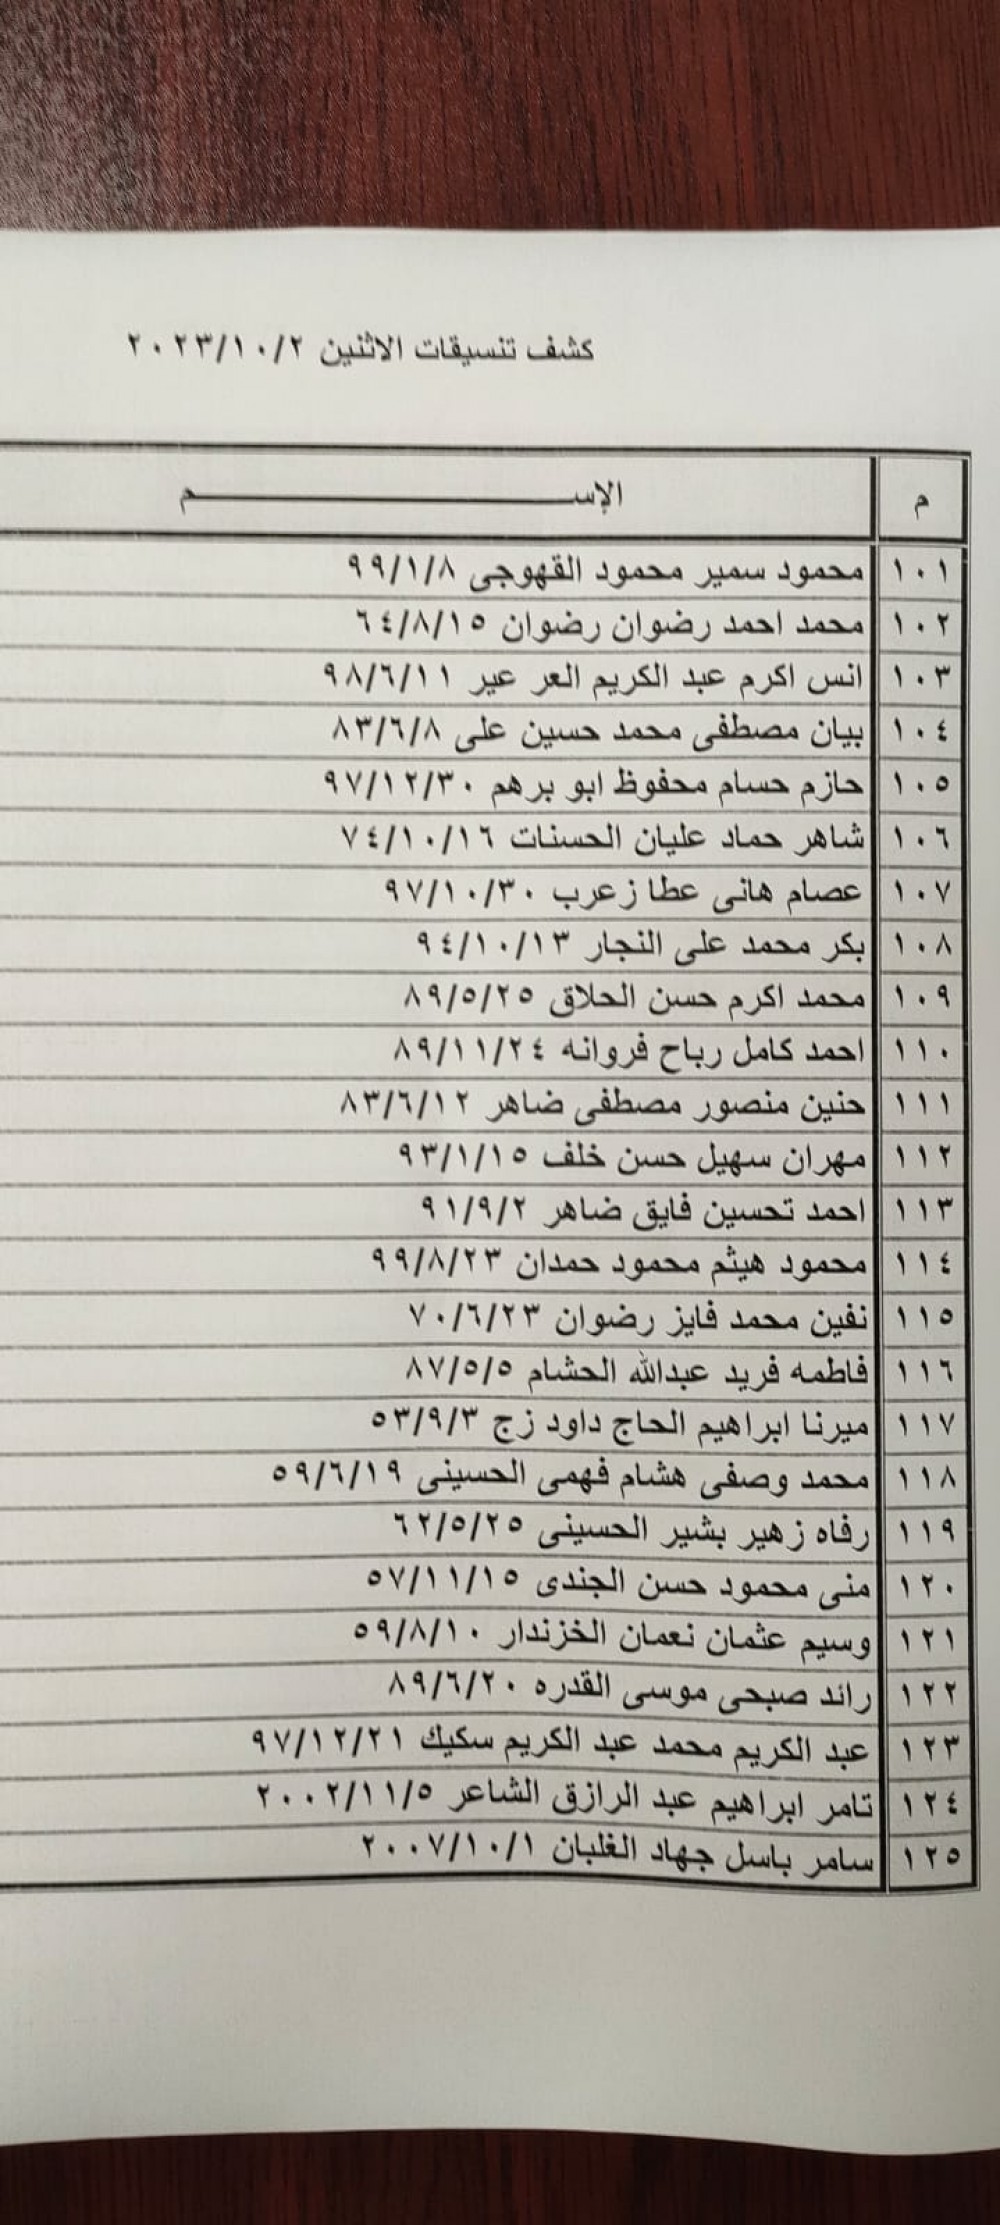 كشف تنسيقات الاثنين ٢٠٢٣/١٠/٢
م الإســـــــــــــم
١٠١ محمود سمير محمود القهوجى ٩٩/١/٨
١٠٢ محمد احمد رضوان رضوان ٦٤/٨/١٥
١٠٣ انس اكرم عبد الكريم العر عير ٩٨/٦/١١
١٠٤ بيان مصطفى محمد حسين على ٨٣/٦/٨
١٠٥ حازم حسام محفوظ ابو برهم ٩٧/١٢/٣٠
١٠٦ شاهر حماد عليان الحسنات ٧٤/١٠/١٦
١٠٧ عصام هانى عطا زعرب ٩٧/١٠/٣٠
١٠٨ بكر محمد على النجار ٩٤/١٠/١٣
١٠٩ محمد اكرم حسن الحلاق ٨٩/٥/٢٥
١١٠ احمد كامل رباح فروانه ٨٩/١١/٢٤
١١١ حنين منصور مصطفى ضاهر ٨٣/٦/١٢
١١٢ مهران سهيل حسن خلف ٩٣/١/١٥
١١٣ احمد تحسين فايق ضاهر ٩١/٩/٢
١١٤ محمود هيثم محمود حمدان ٩٩/٨/٢٣
١١٥ نفين محمد فايز رضوان ٧٠/٦/٢٣
١١٦ فاطمه فريد عبدالله الحشام ٨٧/٥/٥
١١٧ ميرنا ابراهيم الحاج داود زج ٥٣/٩/٣
١١٨ محمد وصفى هشام فهمى الحسينى ٥٩/٦/١٩
١١٩ رفاه زهير بشير الحسينى ٦٢/٥/٢٥
١٢٠ منى محمود حسن الجندى ٥٧/١١/١٥
١٢١ وسيم عثمان نعمان الخزندار ٥٩/٨/١٠
١٢٢ رائد صبحى موسى القدره ٨٩/٦/٢٠
١٢٣ عبد الكريم محمد عبد الكريم سكيك ٩٧/١٢/٢١
١٢٤ تامر ابراهيم عبد الرازق الشاعر ٢٠٠٢/١١/٥
١٢٥ سامر باسل جهاد الغلبان ٢٠٠٧/١٠/١